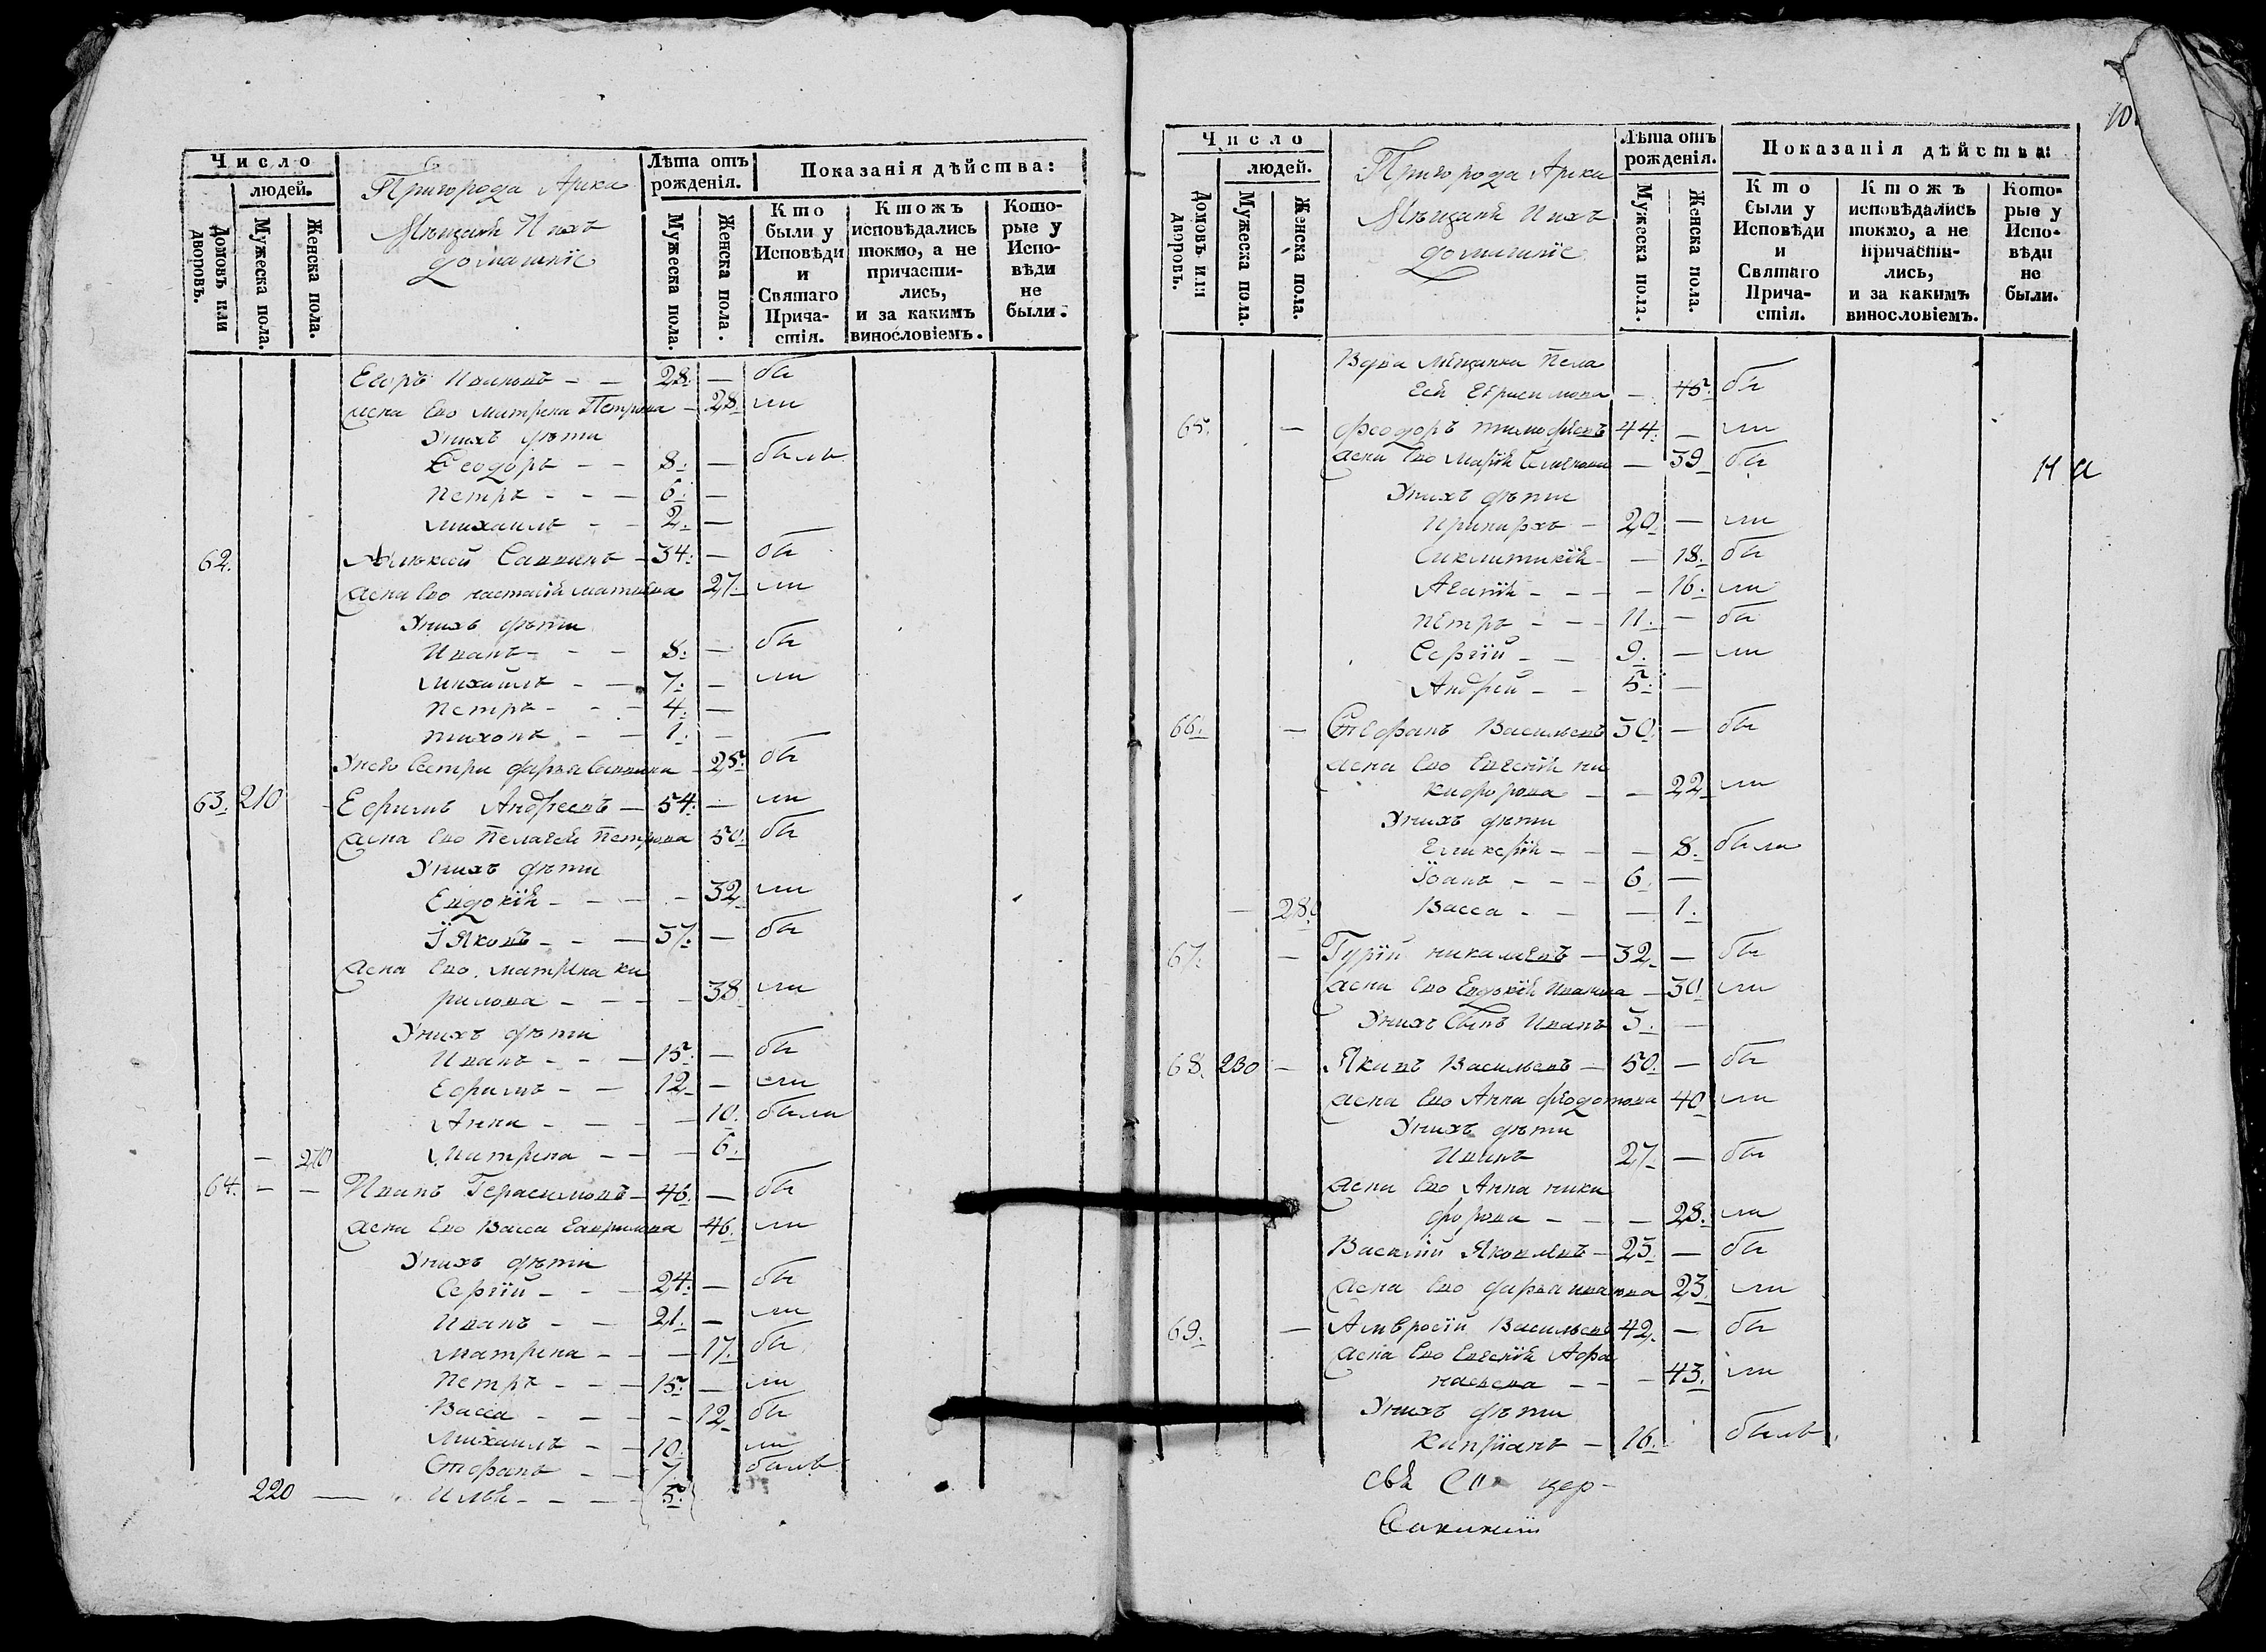 Число
людей.
Домовъ или дворовъ.
Мужеска пола.
Женска пола.
Пригорода Арска
Мещанѣ И ихъ
домашніе
Лѣта отъ рожденія.
Мужеска пола.
Женска пола.
Показанія дѣйства:
Кто были у Исповѣди и Святаго Прича-стія.
Ктожъ исповѣдались токмо, а не причасти-лись, и за какимъ винословіемъ.
Кото-рые у Испо-вѣди не были.
Егоръ Ивановъ - - 28. — бы
жена Ево Матрена Петрова - 28. ли
Унихъ дѣти
Феодоръ - - 8. — былъ
Петръ - - - 6. —
Михаилъ - - 2. —
62. Алексей Саввинъ - 34. — бы
жена Ево настасія матвѣева 27. ли
Унихъ дѣти
Иванъ - - - 8. — бы
Михаилъ - - 7. — ли
Петръ - - - 4. —
тихонъ - - 1. —
Унево Сестра дарья Саввина - 25. бы
63. 210 - Ефримъ Андреевъ — 54. — ли
жена Ево Пелагея Петрова 50. бы
Унихъ дѣти
Евдокія - - - - 32. ли
Яковъ - - — 37. — бы
жена Ево матрена ки
рилова - - - - 38. ли
Унихъ дѣти
Иванъ - - — 15. — бы
Ефримъ - - 12. — ли
Анна - - - - 10. были
— 270 Матрена - - — 6.
64. — — Иванъ Герасимовъ - 46. — бы
жена Ево Васса Гаврилова 46. ли
Унихъ дѣти
Сергій - - — 24. — бы
Иванъ - - 21. — ли
матрена - - — 17. бы
Петръ - - — 15. — ли
Васса - - - - 12. бы
Михаилъ - - 10. ли
Стефанъ - - 7. былъ
220 — Илья - - - - 5.
Число
людей.
Домовъ или дворовъ.
Мужеска пола.
Женска пола.
Пригорода Арска
Мѣщанѣ И ихъ
домашніе
Лѣта отъ рожденія.
Мужеска пола.
Женска пола.
Показанія дѣйства:
Кто были у Исповѣди и Святаго Прича-стія.
Ктожъ исповѣдались токмо, а не причасти-лись, и за какимъ винословіемъ.
Кото-рые у Испо-вѣди не были.
Вдова Мѣщанка Пела
гея Ефросимова - 45. бы
65. — Феодоръ тимофѣевъ 44. — ли
жена Ево Марія Семенова — 39. бы
Унихъ дѣти
Принархъ - 20. — ли
Сиклитикія - — 18. бы
Агапія - - - - 16. ли
пЕтръ - - - 11. — бы
Сергій - - 9. — ли
Андрей - - 5. —
66. — Стефанъ Васильевъ 30. — бы
жена Ево Евгенія ни
кифорова - - 22. ли
Унихъ дѣти
Гликерія - - - 8. были
Іоанъ - - - 6. —
— 280 Васса - - — 1.
67. — Гурій никалаевъ — 32. — бы
жена Ево Евдокія Иванова — 30. ли
Унихъ Сынъ Иванъ 3. —
68. 230 — Якимъ Васильевъ — 50. — бы
жена Ево Анна Федотова 40. ли
Унихъ дѣти
Иванъ 27. — бы
жена Ево Анна ники
форова - - - 28. ли
Василій Якимовъ - 25. — бы
жена Ево дарья ивановна 23. ли
69. — Амвросій Васильевъ 42. — бы
жена Ево Евгенія Афа
насьева - - - 43. ли
Унихъ дѣти
Кипріанъ - 16. былъ
11